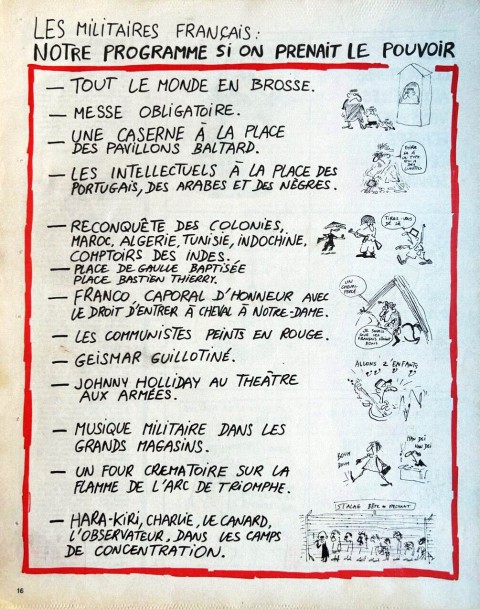 LES MILITAIRES FRANÇAIS:
NOTRE PROGRAMME SI ON PRENAIT LE POUVOIR
— TOUT LE MONDE EN BROSSE.
— MESSE OBLIGATOIRE.
— UNE CASERNE À LA PLACE
DES PAVILLONS BALTARD.
— LES INTELLECTUELS À LA PLACE DES
PORTUGAIS, DES ARABES ET DES NÈGRES.
— RECONQUÊTE DES COLONIES,
MAROC, ALGERIE, TUNISIE, INDOCHINE,
COMPTOIRS DES INDES.
TIREZ-VOUS
DE LÀ
— PLACE DE GAULLE BAPTISÉE
PLACE BASTIEN THIERRY.
— FRANCO, CAPORAL D'HONNEUR AVEC
LE DROIT D'ENTRER À CHEVAL À NOTRE-DAME.
UN
CHEVAL
— LES COMMUNISTES PEINTS EN ROUGE.
— GEISMAR GUILLOTINÉ.
— JOHNNY HOLLIDAY AU THEÂTRE
AUX ARMÉES.
ALLONS Z'ENFANTS
— MUSIQUE MILITAIRE DANS LES
GRANDS MAGASINS.
BOUM
BOUM
— UN FOUR CREMATOIRE SUR LA
FLAMME DE L'ARC DE TRIOMPHE.
— HARA-KIRI, CHARLIE, LE CANARD,
L'OBSERVATEUR, DANS LES CAMPS
DE CONCENTRATION.
STALAG BÊTE ET MÉCHANT
16